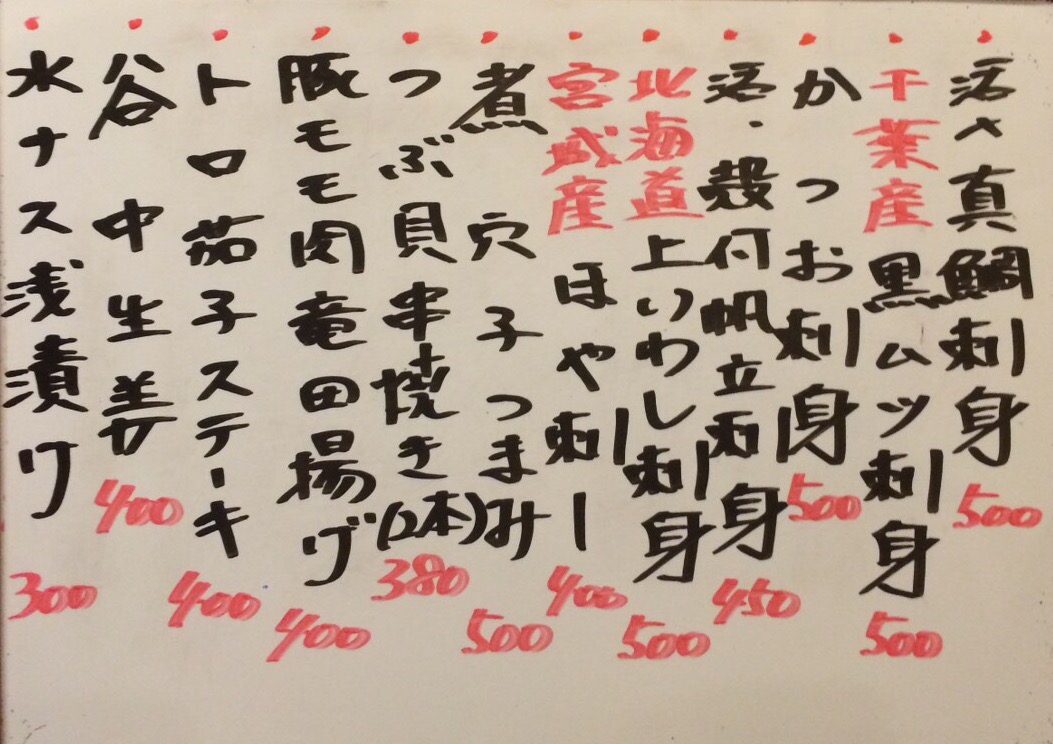 活〆真鯛刺身 500
千葉産黒ムツ刺身 500
かつお刺身 500
活・殻付帆立刺身 450
北海道上いわし刺身 500
宮城産ほや刺し 400
煮穴子つまみ 500
つぶ貝串焼き(2本) 380
豚モモ肉竜田揚げ 400
トロ茄子ステーキ 400
谷中生姜 400
水ナス浅漬け 300